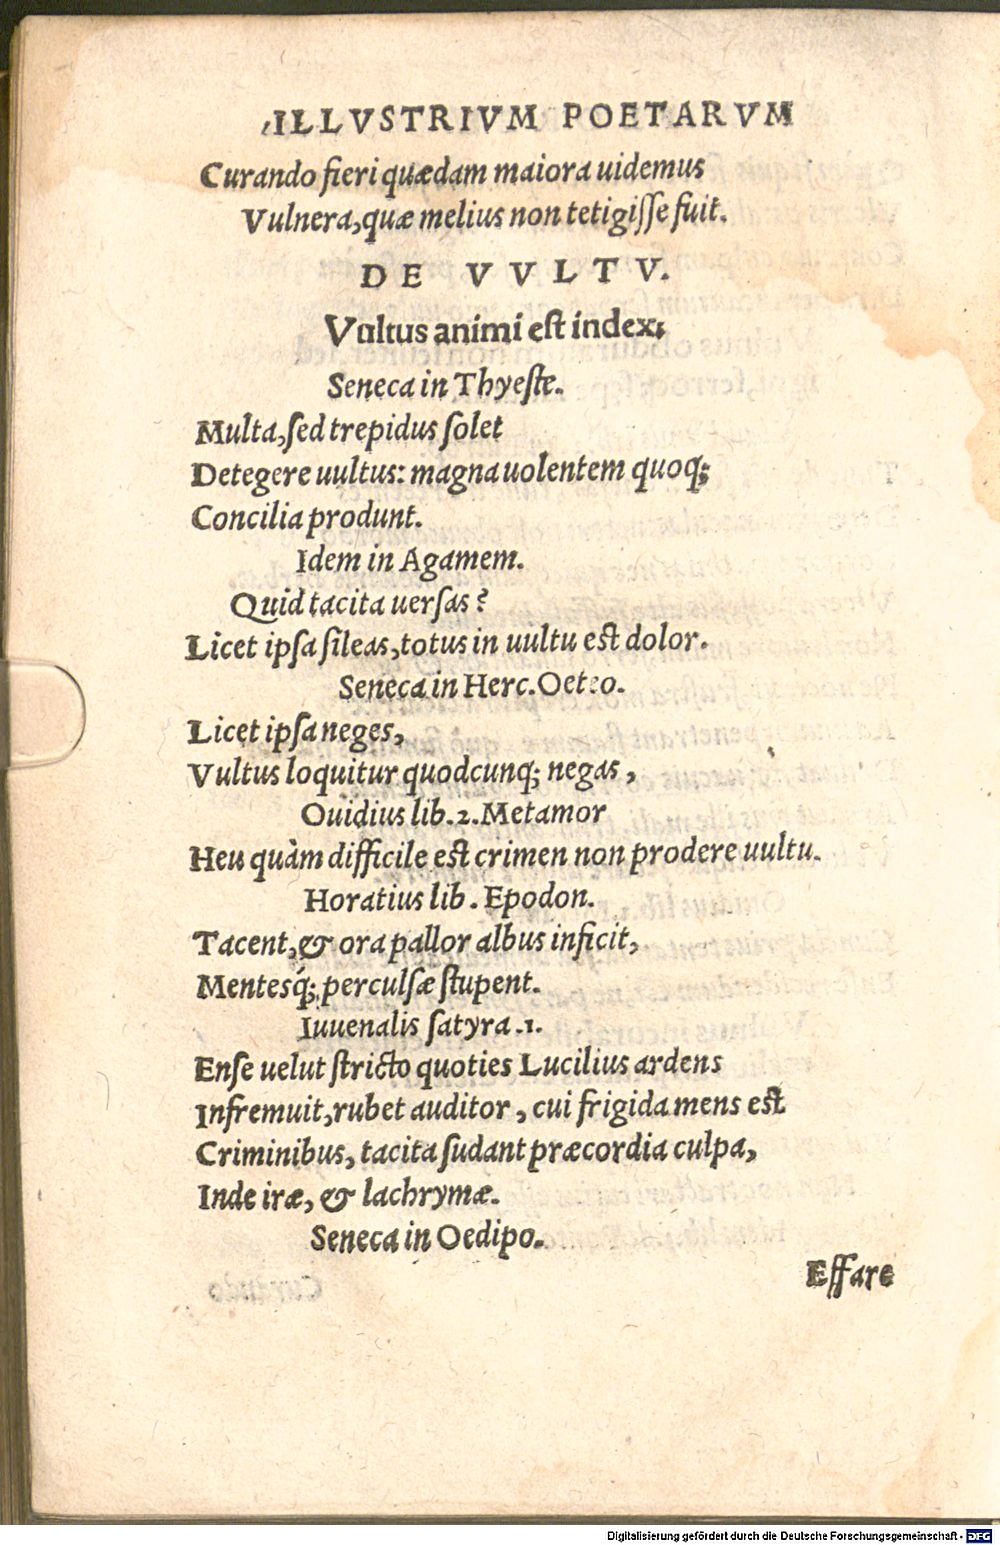 ILLVSTRIVM POETARVM
Curando fieri quædam maiora uidemus
Vulnera, quæ melius non tetigiſſe fuit.
DE VVLTV.
Vultus animi est index;
Seneca in Thyeſte.
Multa, ſed trepidus ſolet
Detegere uultus: magna uolentem quoq;
Concilia produnt.
Idem in Agamem.
Quid tacita uerſas?
Licet ipſa ſileas, totus in uultu est dolor.
Seneca in Herc. Oeteo.
Licet ipſa neges,
Vultus loquitur quodcunq; negas,
Ouidius lib. 2. Metamor
Heu quàm difficile est crimen non prodere uultu.
Horatius lib. Epodon.
Tacent, & ora pallor albus inficit,
Mentesq́; perculſæ ſtupent.
Iuuenalis ſatyra .1.
Enſe uelut ſtricto quoties Lucilius ardens
Infremuit, rubet auditor, cui frigida mens est
Criminibus, tacita ſudant præcordia culpa,
Inde iræ, & lachrymæ.
Seneca in Oedipo.
Effare
Digitalisierung gefördert durch die Deutsche Forschungsgemeinschaft - DFG